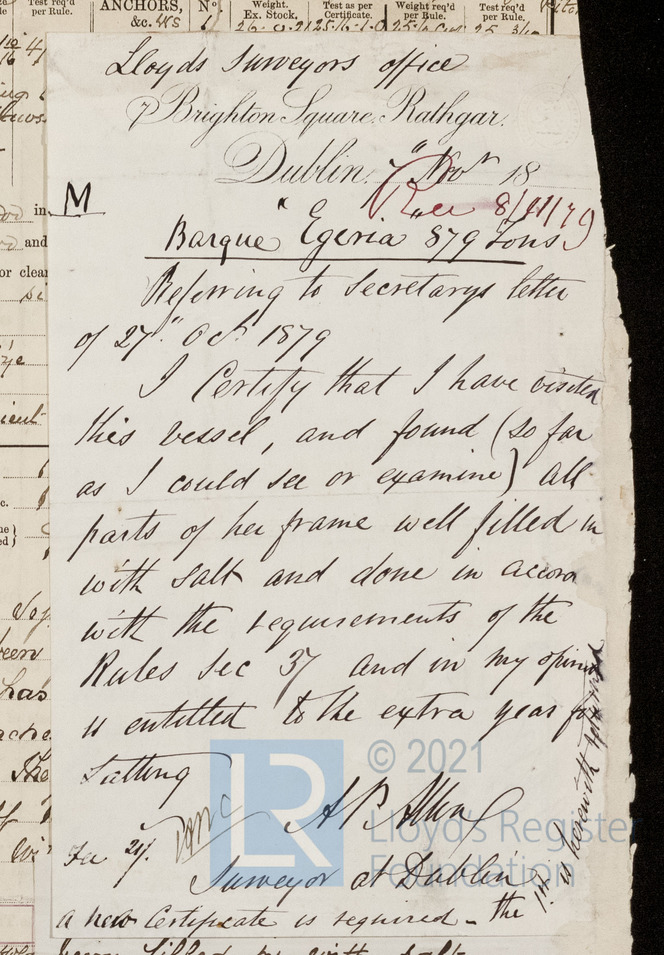 Test req'd
per Rule.
ANCHORS,
&c.
No
Weight.
Ex. Stock.
Test as per
Certificate.
Weight req'd
per Rule.
Test req'd
per Rule.
Lloyds Surveyors office
7 Brighton Square, Rathgar.
Dublin, 7" Novr 18
Rec 8/11/79
M
Barque "Egeria" 879 Tons
Referring to Secretarys letter
of 27" Oct 1879
I Certify that I have visited
this vessel, and found (so far
as I could see or examine) all
parts of her frame well filled in
with salt and done in accor
with the requirements of the
Rules Sec 37 and in my opinion
is entitled to the extra year for
Salting
Surveyor at Dublin
a new Certificate is required - the 1st is herewith returned
in
and
or clear
LR
© 2021
Lloyd's Register
Foundation